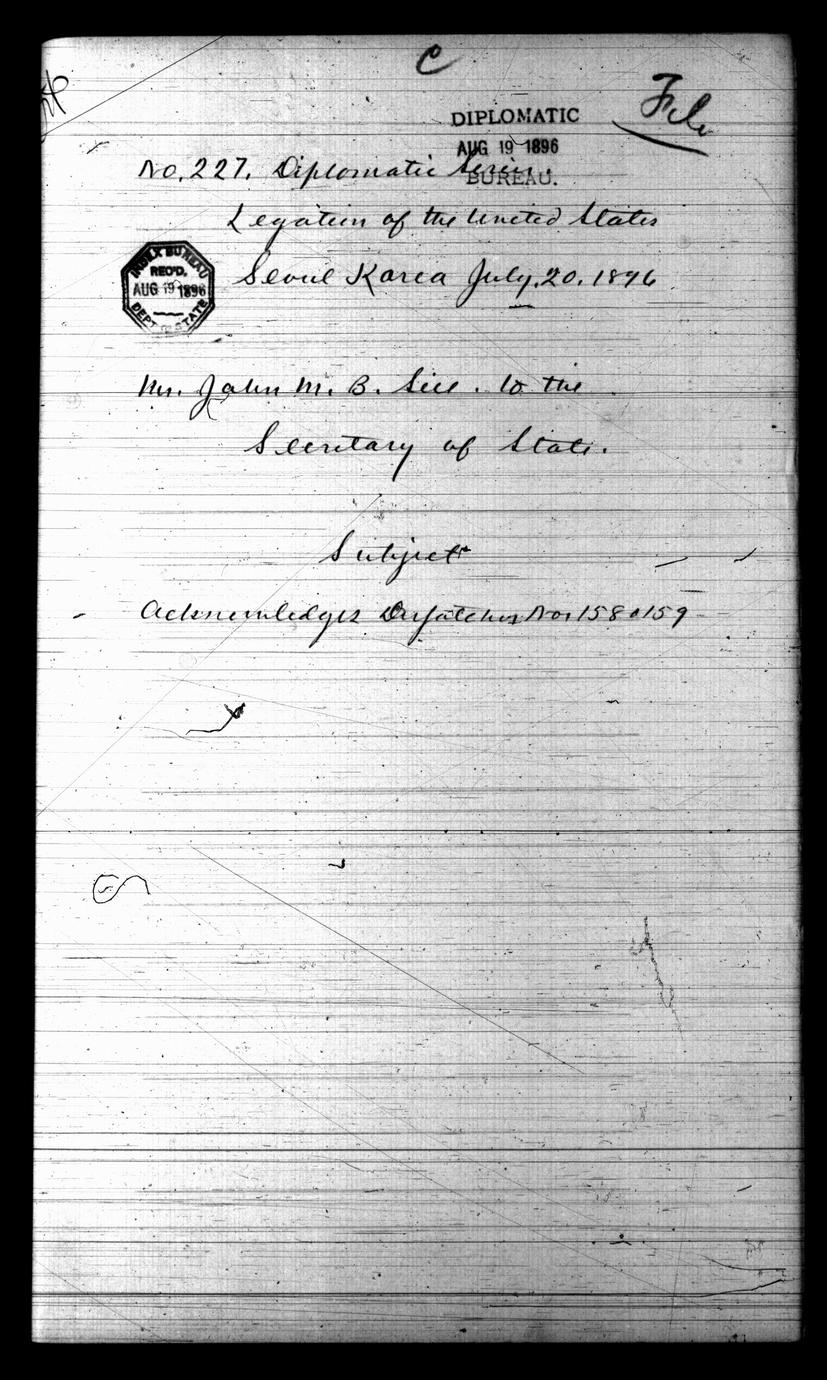 C
File
DIPLOMATIC
AUG 19 1896
BUREAU.
No. 227. Diplomatic Series.
Legation of the United States
INDEX BUREAU
REC'D.
AUG 19 1896
DEPT OF STATE
Seoul Korea July, 20, 1896
Mr. John M. B. Sill. to the
Secretary of State.
Subject
Acknowledges Despatches Nos 158 & 159